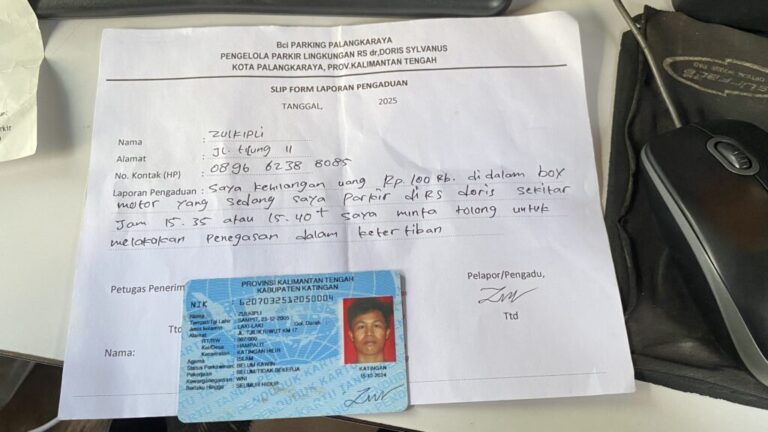 Bci PARKING PALANGKARAYA
PENGELOLA PARKIR LINGKUNGAN RS dr,DORIS SYLVANUS
KOTA PALANGKARAYA, PROV.KALIMANTAN TENGAH
SLIP FORM LAPORAN PENGADUAN
TANGGAL, 2025
Nama : ZULKIPLI
Alamat : JL. Tijung 11
No. Kontak (HP) : 0896 6238 8085
Laporan Pengaduan : Saya kehilangan uang Rp. 100 Rb. didalam box
motor yang sedang saya Parkir di RS doris sekitar
Jam 15.35 atau 15.40 + saya minta tolong untuk
melakokan Penegasan dalam ketertiban
Petugas Penerim
Pelapor/Pengadu,
Ttd
Nama:
PROVINSI KALIMANTAN TENGAH
KABUPATEN KATINGAN
NIK : 6207032512050004
Nama : ZULKIPLI
Tempat/Tgl Lahir : SAMPIT, 25-12-2005
Jenis kelamin : LAKI-LAKI Gol. Darah
Alamat : JL. TJILIK RIWUT KM 17
RT/RW
Kel/Desa : HAMPALIT
Kecamatan : KATINGAN HILIR
Agama : ISLAM
Status Perkawinan: BELUM KAWIN
Pekerjaan : BELUM/TIDAK BEKERJA
Kewarganegaraan: WNI
Berlaku Hingga : SEUMUR HIDUP
KATINGAN
15-10-2024